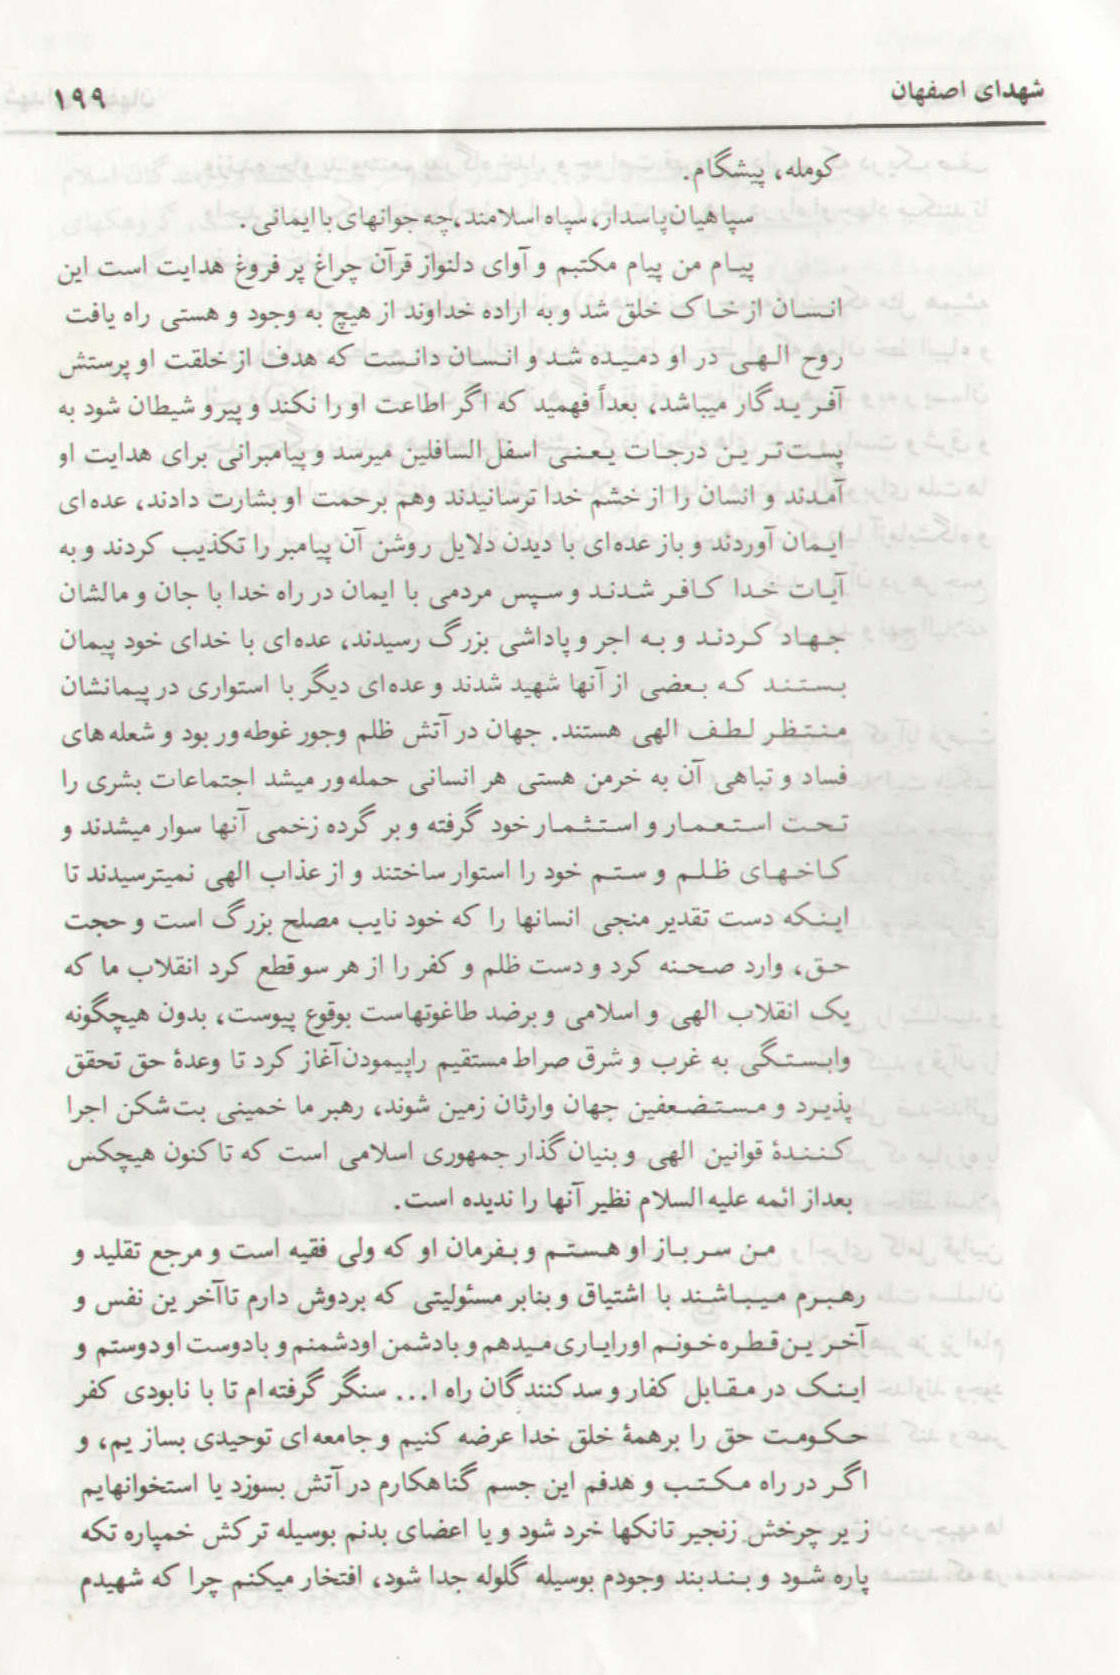 شهدای اصفهان
۱۹۹
کومله، پیشگام.
سپاهیان پاسدار، سپاه اسلامند، چه جوانهای با ایمانی.
پیام من پیام مکتبم و آوای دلنواز قرآن چراغ پر فروغ هدایت است این
انسان از خاک خلق شد و به اراده خداوند از هیچ به وجود و هستی راه یافت
روح الهی در او دمیده شد و انسان دانست که هدف از خلقت او پرستش
آفریدگار میباشد، بعداً فهمید که اگر اطاعت او را نکند و پیرو شیطان شود به
پست‌ترین درجات یعنی اسفل السافلین میرسد و پیامبرانی برای هدایت او
آمدند و انسان را از خشم خدا ترسانیدند وهم برحمت او بشارت دادند، عده‌ای
ایمان آوردند و باز عده‌ای با دیدن دلایل روشن آن پیامبر را تکذیب کردند و به
آیات خدا کافر شدند و سپس مردمی با ایمان در راه خدا با جان و مالشان
جهاد کردند و به اجر و پاداشی بزرگ رسیدند، عده‌ای با خدای خود پیمان
بستند که بعضی از آنها شهید شدند و عده‌ای دیگر با استواری در پیمانشان
منتظر لطف الهی هستند. جهان در آتش ظلم وجور غوطه‌ور بود و شعله‌های
فساد و تباهی آن به خرمن هستی هر انسانی حمله‌ور میشد اجتماعات بشری را
تحت استعمار و استثمار خود گرفته و بر گرده زخمی آنها سوار میشدند و
کاخهای ظلم و ستم خود را استوار ساختند و از عذاب الهی نمیترسیدند تا
اینکه دست تقدیر منجی انسانها را که خود نایب مصلح بزرگ است و حجت
حق، وارد صحنه کرد و دست ظلم و کفر را از هر سو قطع کرد انقلاب ما که
یک انقلاب الهی و اسلامی و برضد طاغوتهاست بوقوع پیوست، بدون هیچگونه
وابستگی به غرب و شرق صراط مستقیم را پیمودن آغاز کرد تا وعدهٔ حق تحقق
پذیرد و مستضعفین جهان وارثان زمین شوند، رهبر ما خمینی بت‌شکن اجرا
کنندهٔ قوانین الهی و بنیان گذار جمهوری اسلامی است که تا کنون هیچکس
بعداز ائمه علیه السلام نظیر آنها را ندیده است.
من سرباز او هستم و بفرمان او که ولی فقیه است و مرجع تقلید و
رهبرم میباشند با اشتیاق و بنابر مسئولیتی که بردوش دارم تا آخرین نفس و
آخرین قطره خونم او را یاری میدهم و با دشمن او دشمنم و با دوست او دوستم و
اینک در مقابل کفار و سدکنندگان راه ا... سنگر گرفته‌ام تا با نابودی کفر
حکومت حق را برهمهٔ خلق خدا عرضه کنیم و جامعه‌ای توحیدی بسازیم، و
اگر در راه مکتب و هدفم این جسم گناهکارم در آتش بسوزد یا استخوانهایم
زیر چرخش زنجیر تانکها خرد شود و یا اعضای بدنم بوسیله ترکش خمپاره تکه
پاره شود و بندبند وجودم بوسیله گلوله جدا شود، افتخار میکنم چرا که شهیدم